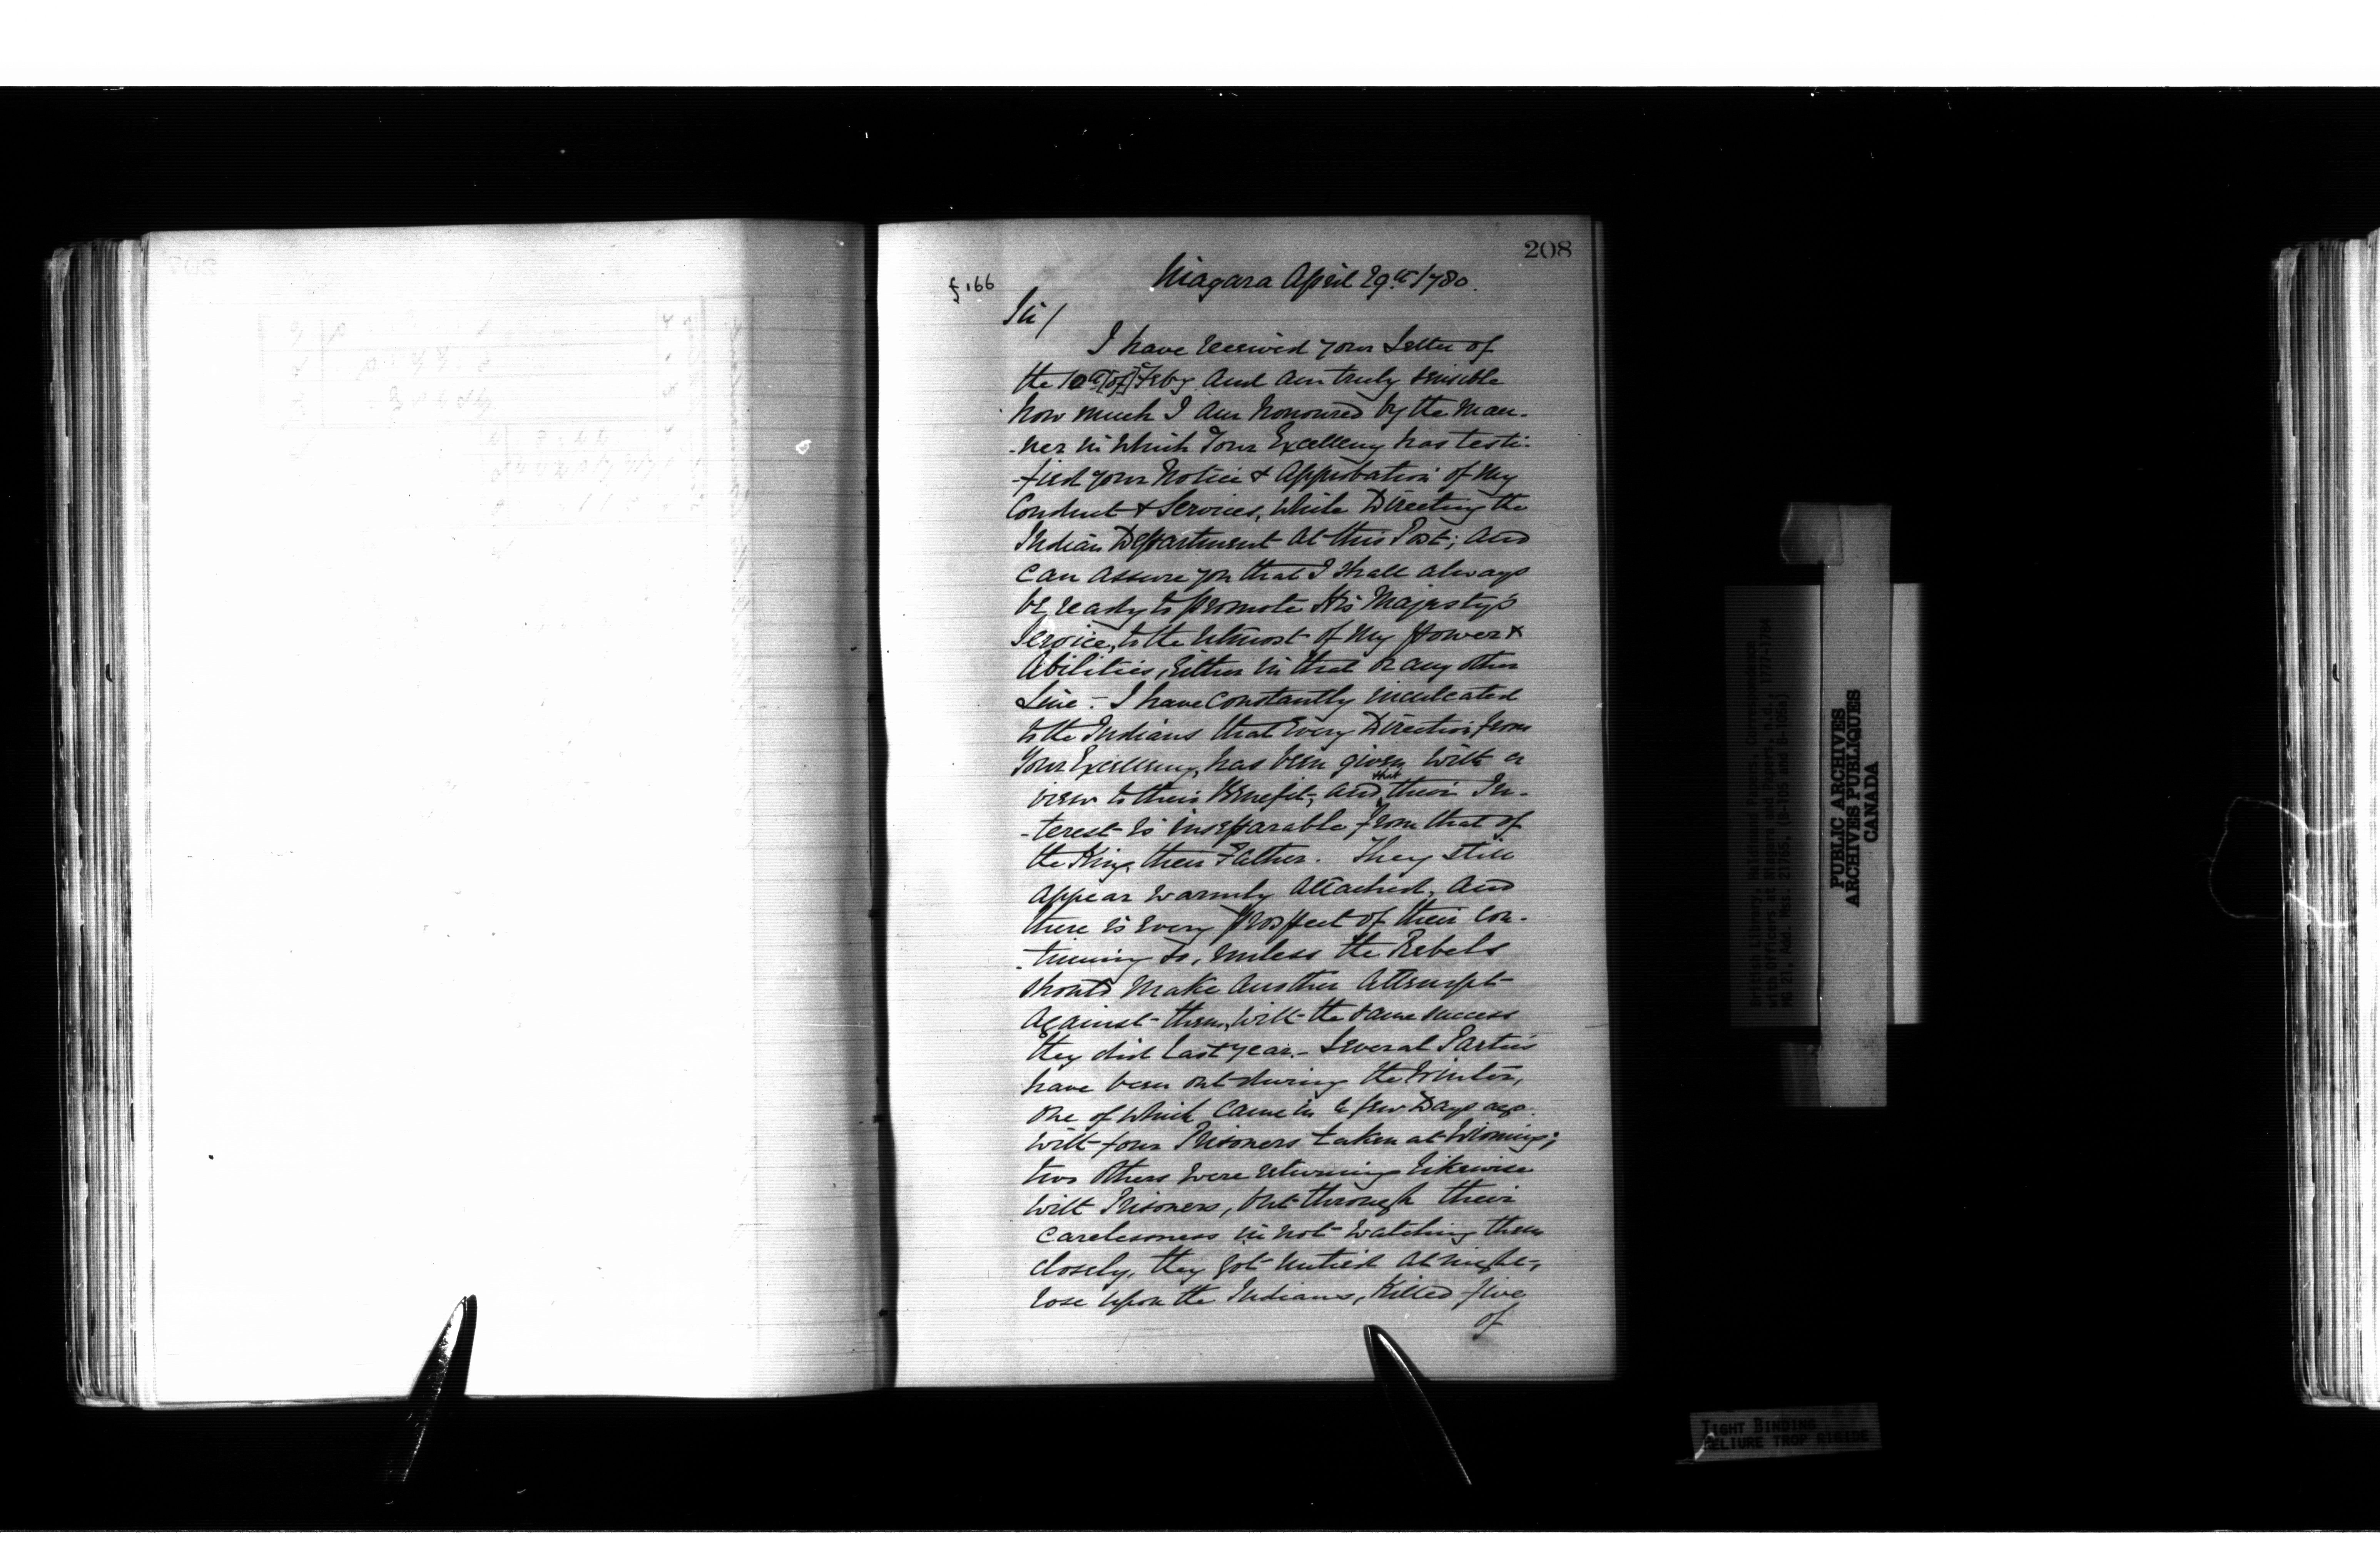 208
f 166
Niagara April 29th 1780.
Sir/
I have received your Letter of
the 10th [of] Feby. and am truly sensible
how much I am honoured by the man-
-ner in which Your Excellency has testi-
-fied your Notice & Approbation of my
Conduct & Services, while Directing the
Indian Department at this Post; and
can assure you that I shall always
be ready to promote His Majesty's
Service, to the utmost of my power &
Abilities, either in that or any other
Line.- I have constantly inculcated
to the Indians that every Direction from
Your Excellency, has been given with a
view to their Benefit, and that their In-
-terest is inseparable from that of
the King, their Father. They still
appear warmly attached, and
there is every prospect of their con-
-tinuing so, unless the Rebels
should make another attempt
against them, with the same success
they did last year.- Several Parties
have been out during the Winter,
one of which came in a few Days ago
with four Prisoners taken at Wioming;
two others were returning likewise
with Prisoners, but through their
carelesness in not watching them
closely, they got untied at night,
rose upon the Indians, killed five
of
British Library, Haldimand Papers, Correspondence
with Officers at Niagara and Papers, n.d., 1777-1784
MG 21, Add. Mss. 21765, (B-105 and B-105a)
PUBLIC ARCHIVES
ARCHIVES PUBLIQUES
CANADA
TIGHT BINDING
RELIURE TROP RIGIDE